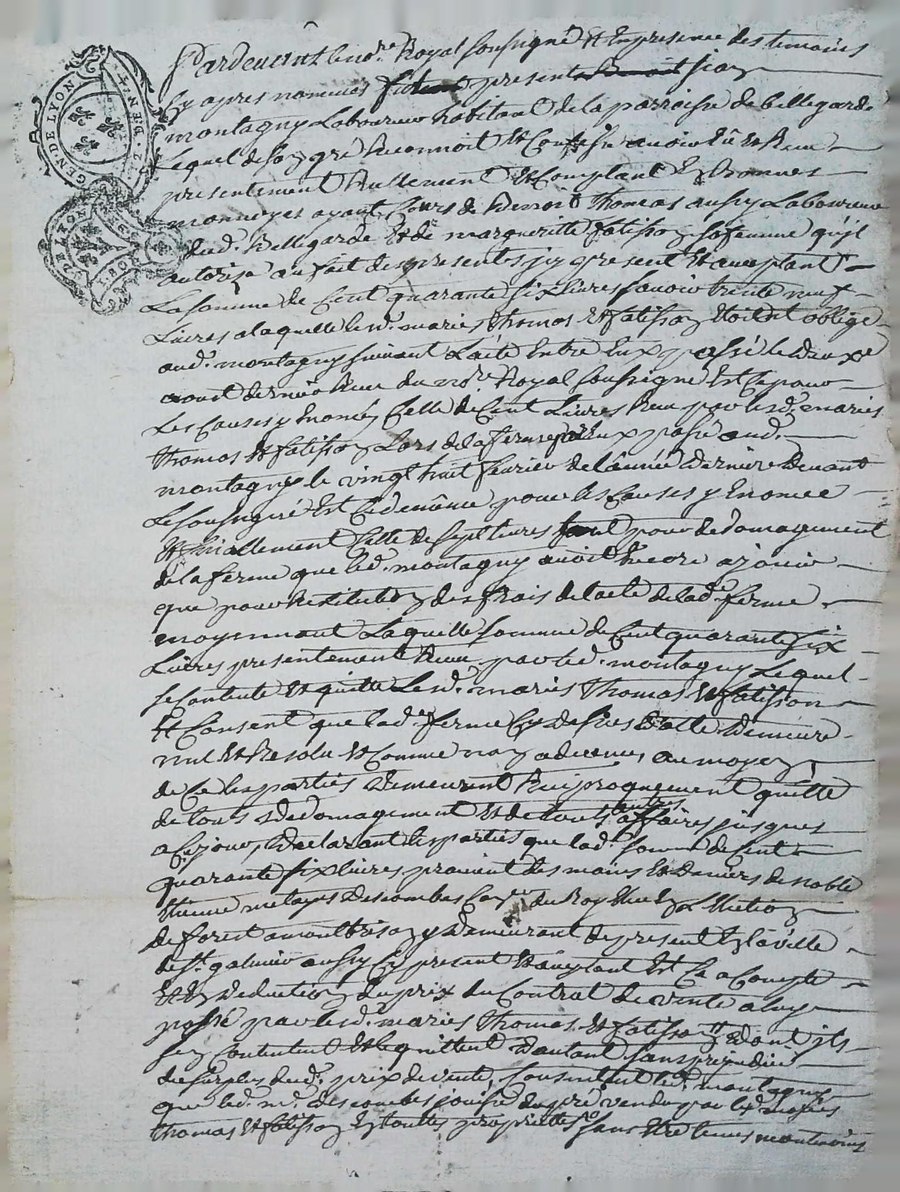 GEN DE LYON
DE LYON
Pardevant le no.re Royal soussigné et en presence des temoins
cy apres nommes fut present sieur
montagny Laboureur habitant de la parroisse de bellegarde
Lequel de son gre Reconnoit et Confesse avoir Eu et Receu
presentement Reellement et Comptant En bonnes
monnoyes ayant Cours de benoit Thomas aussy Laboureur
dud. Bellegarde et de margueritte fatisson sa femme qu'il
autorise au fait des presentes jcy present et acceptant
La somme de Cent quarante six Livres scavoir trente neuf
Livres a laquelle lesd. maries Thomas et fatisson Etoient obligé
aud. montagny suivant L'acte Entre Eux passé le deuxe
aoust dernier Receu du no.re Royal soussigné Est Ce pour
Les Causes y Enoncés Celle de Cent Livres Receu par lesd. maries
Thomas et fatisson Lors de la ferme par Eux passé aud.
montagny le vingt huit fevrier de l'année derniere devant
Le soussigné Est Ce de même pour les Causes y Enoncé
et finallement Celle de sept livres pour dedomagement
de la ferme que led. montagny avoit Encore a jouir
que pour Restitution des frais de l'acte de lad.e ferme
moyennant Laquelle somme de Cent quarante six
Livres presentement Receu par led. montagny Lequel
se Contente et quitte Lesd. maries Thomas et fatisson
et Consent que lad.e ferme Cy dessus datté demeure
nul et Resolu et Comme non advenu au moyen
de Ce les parties demeurent Reciproquement quitte
de tous dedomagement et de toutes autres affaires jusques
a Ce jour, declarant les parties que lad. somme de Cent
quarante six livres provient des mains et deniers de noble
Etienne metayer descombes Con.er du Roy Elu En L'Election
de forest a montbrison y demeurant de present En la ville
de S.t galmier aussy Cy present et acceptant Est Ce a Compte
et En deduction du prix du Contrat de vente a luy
passé par lesd. maries Thomas et fatisson dont ils
s'en Contentent et le quittent d'autant sans prejudice
du surplus dud. prix de vente, Consentant led. montagny
que led. m.r descombes jouisse du pré vendu par lesd. maries
Thomas et fatisson En toutes proprietté sans Etre tenus